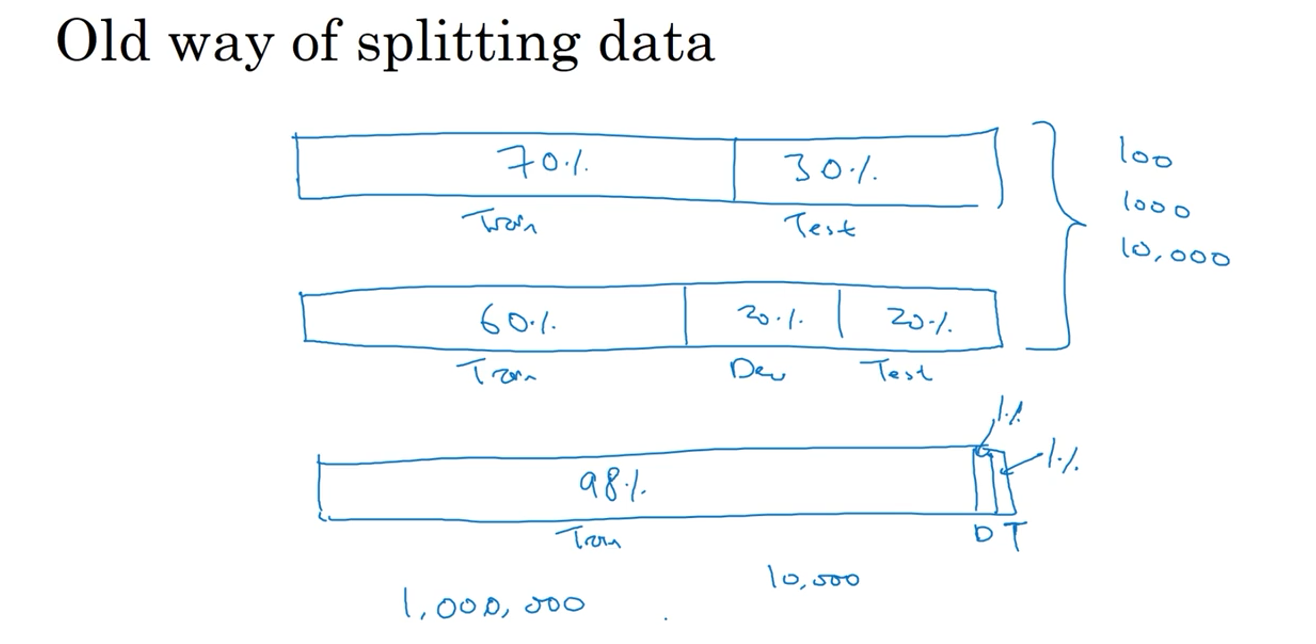 Old way of splitting data
70% 30%
Train Test
100
1000
10,000
60% 20% 20%
Train Dev Test
1%
1%
98%
Train
D T
10,000
1,000,000